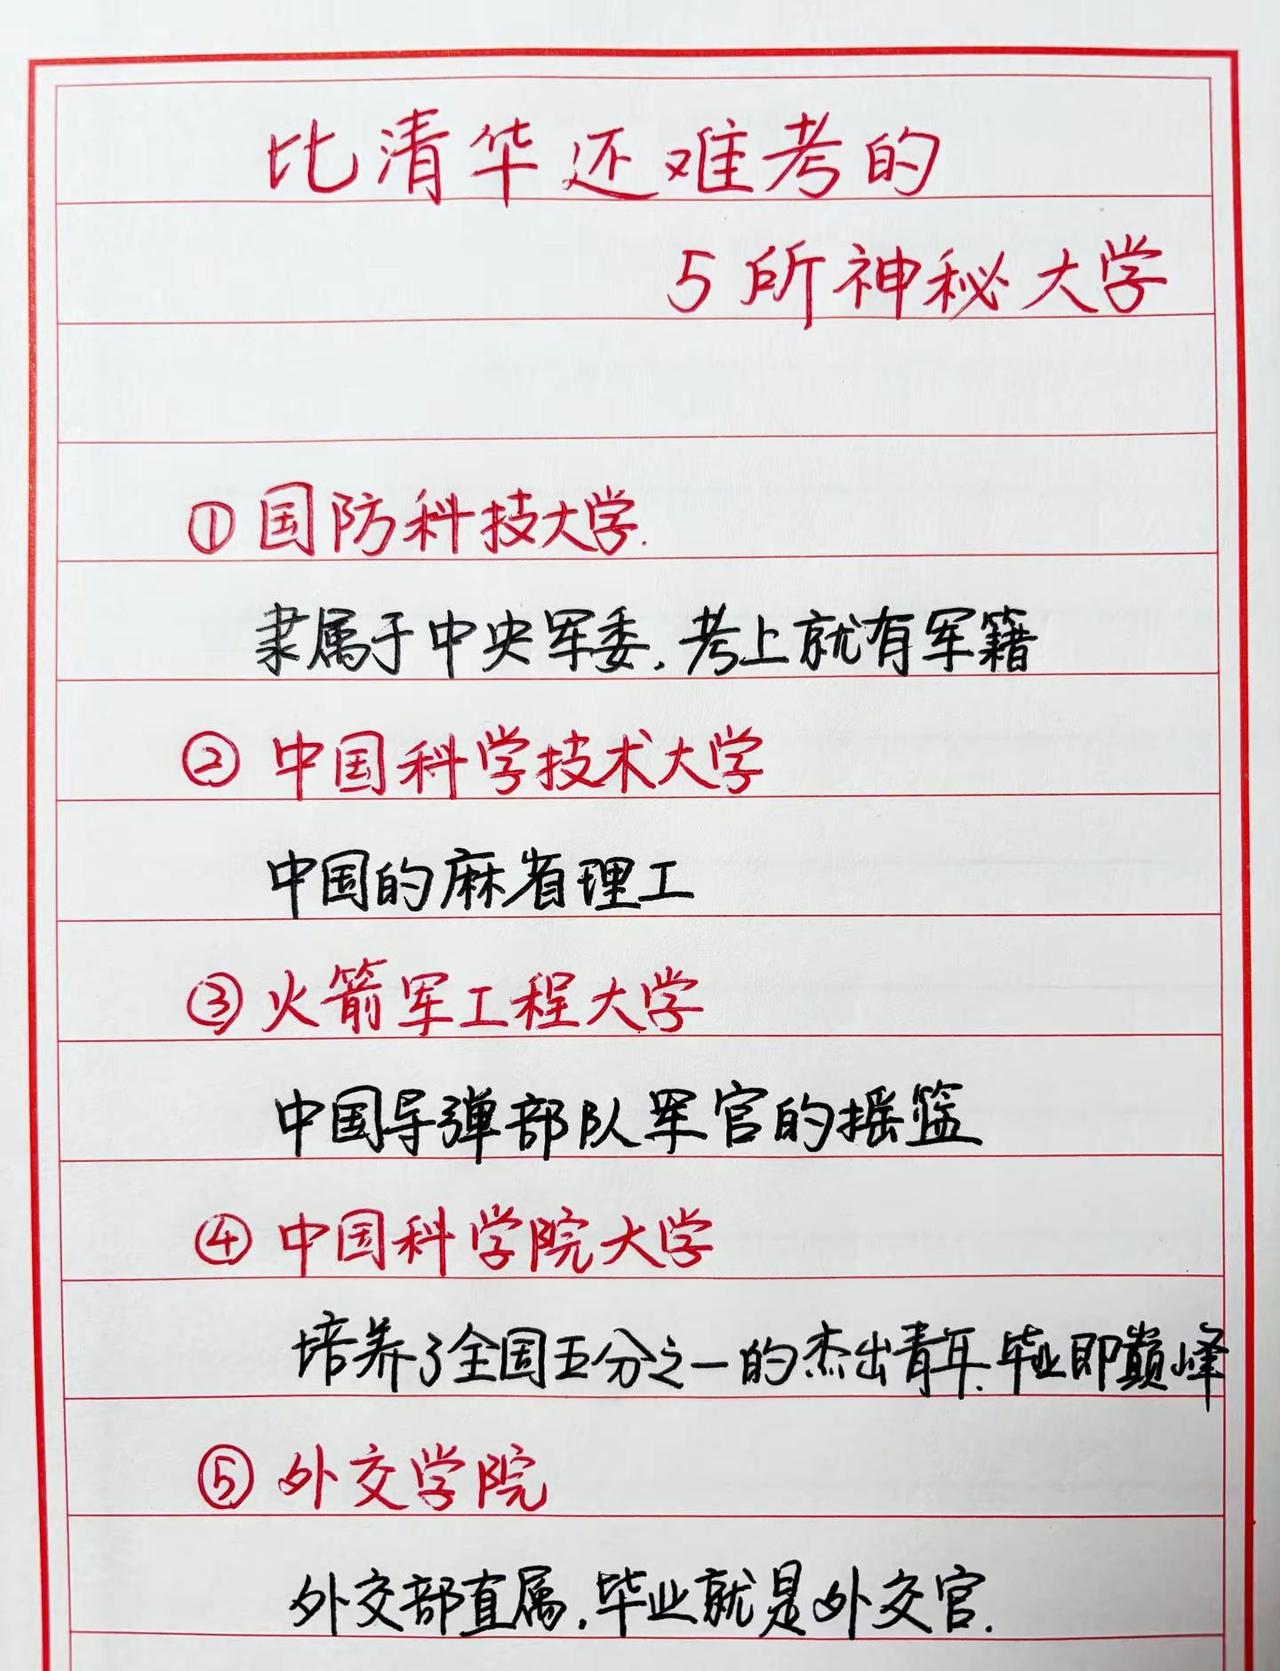 比清华还难考的
5所神秘大学
①国防科技大学.
隶属于中央军委,考上就有军籍
②中国科学技术大学
中国的麻省理工
③火箭军工程大学
中国导弹部队军官的摇篮
④中国科学院大学
培养了全国五分之一的杰出青年.毕业即巅峰
⑤外交学院
外交部直属,毕业就是外交官.